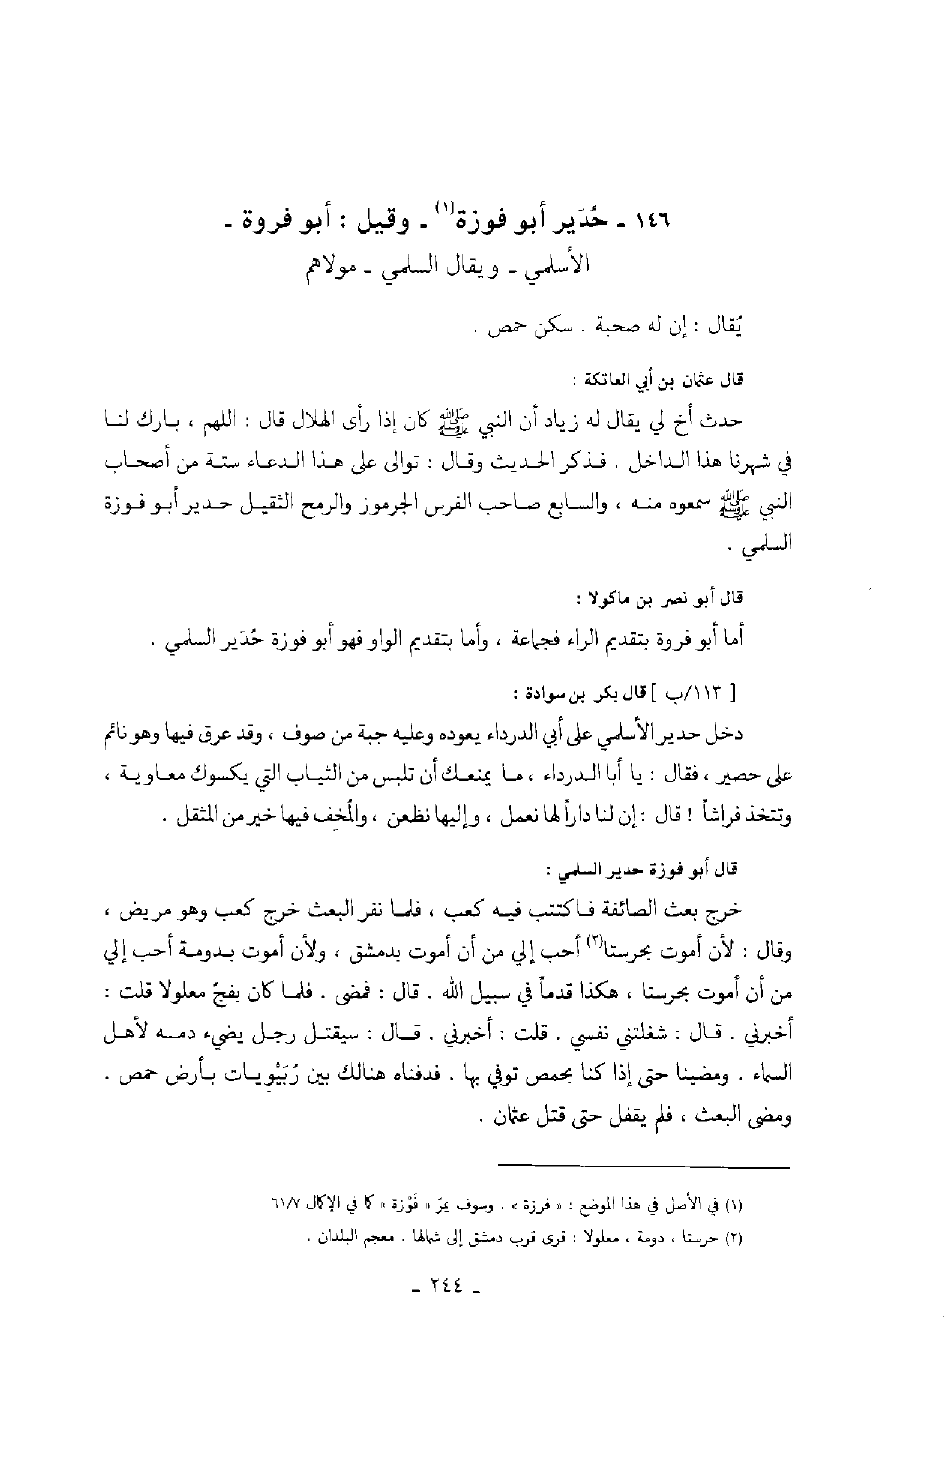 ١٤٦ ـ حُدَير أبو فوزة(١) ـ وقيل : أبو فروة ـ
الأسلمي ـ ويقال السلمي ـ مولاهم
يُقال : إن له صحبة . سكن حمص .
قال عثمان بن أبي العاتكة :
حدث أخ لي يقال له زياد أن النبي ﷺ كان إذا رأى الهلال قال : اللهم ، بارك لنا
في شهرنا هذا الداخل . فذكر الحديث وقال : توالى على هذا الدعاء ستة من أصحاب
النبي ﷺ سمعوه منه ، والسابع صاحب الفرس الجرموز والرمح الثقيل حدير أبو فوزة
السلمي .
قال أبو نصر بن ماكولا :
أما أبو فروة بتقديم الراء فجماعة ، وأما بتقديم الواو فهو أبو فوزة حُدَير السلمي .
[ ١١٣/ب ] قال بكر بن سوادة :
دخل حدير الأسلمي على أبي الدرداء يعوده وعليه جبة من صوف ، وقد عرق فيها وهو نائم
على حصير ، فقال : يا أبا الدرداء ، ما يمنعك أن تلبس من الثياب التي يكسوك معاوية ،
وتتخذ فراشاً ! قال : إن لنا داراً لها نعمل ، وإليها نظعن ، والمُخف فيها خير من المثقل .
قال أبو فوزة حدير السلمي :
خرج بعث الصائفة فاكتتب فيه كعب ، فلما نفر البعث خرج كعب وهو مريض ،
وقال : لأن أموت بحرستا(٢) أحب إلي من أن أموت بدمشق ، ولأن أموت بدومة أحب إلي
من أن أموت بحرستا ، هكذا قدماً في سبيل الله . قال : فمضى . فلما كان بفجّ معلولا قلت :
أخبرني . قال : شغلتني نفسي . قلت : أخبرني . قال : سيقتل رجل يضيء دمه لأهل
السماء . ومضينا حتى إذا كنا بحمص توفي بها . فدفناه هنالك بين زُيْتُويات بأرض حمص .
ومضى البعث ، فلم يقفل حتى قتل عثمان .
(١) في الأصل في هذا الموضع : « فرزة » . وسوف يمرّ « فَوْزة » كما في الإكمال ٦١/٧
(٢) حرستا ، دومة ، معلولا : قرى قرب دمشق إلى شمالها . معجم البلدان .
ـ ٢٤٤ ـ